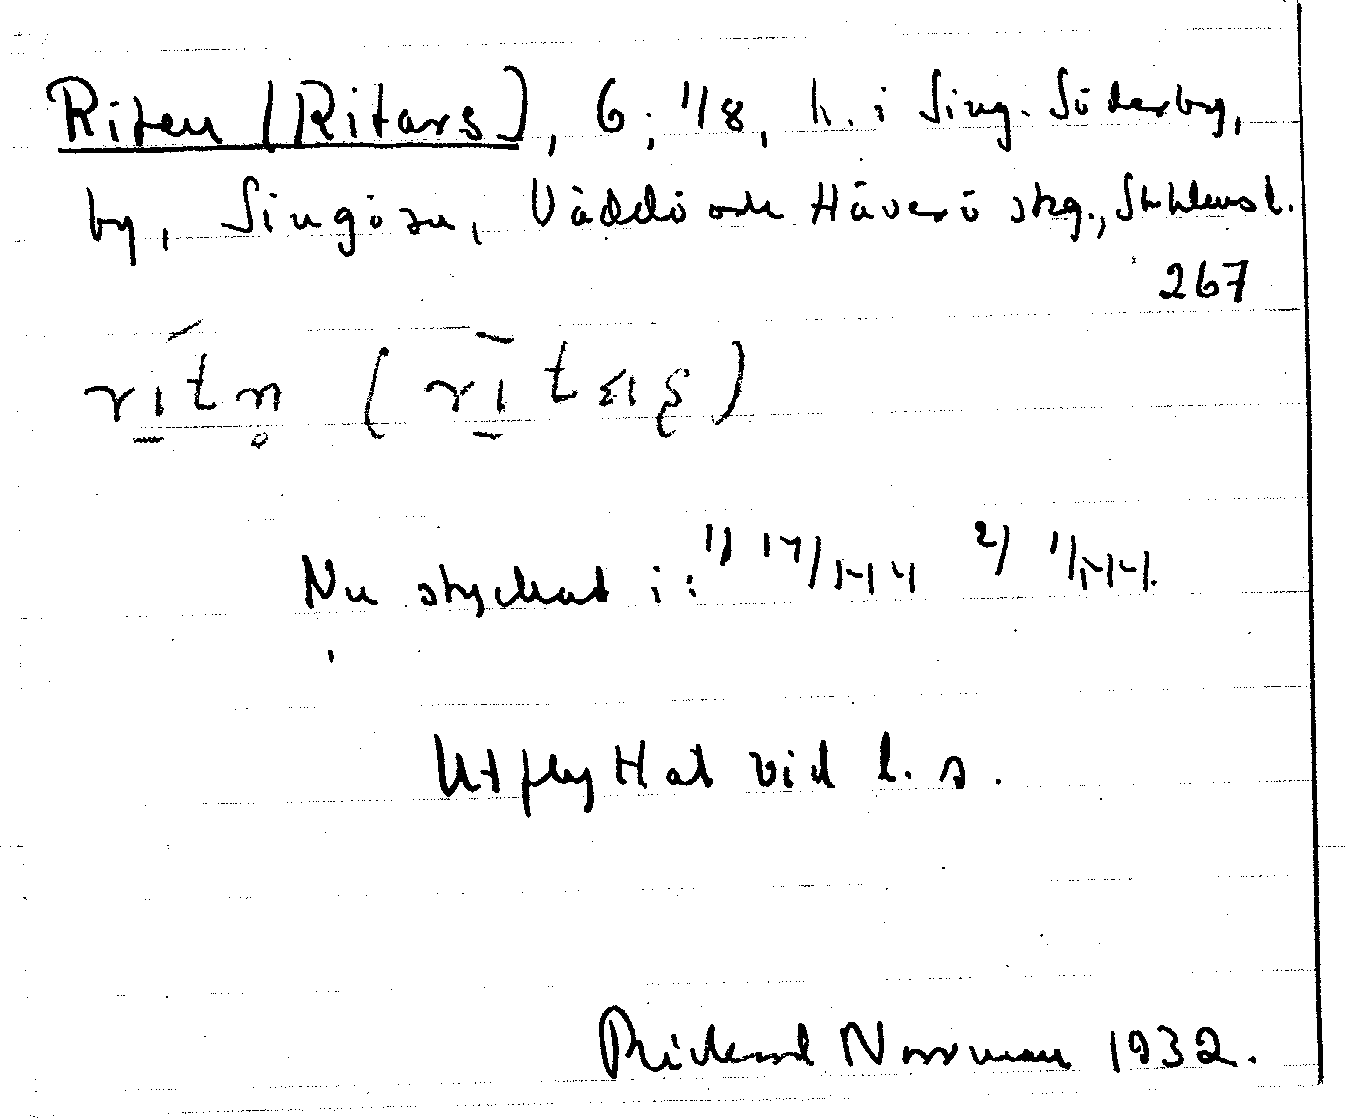 Riten (Ritars), 6; 1/8, h. i Sing. Söderby,
by, Singö sn, Väddö och Häverö skg., Sthlms l.
267
rītn̥ (rī
Nu styckad i: 1) 17/144 2) 1/144.
Utflyttat vid l. s.
Rickard Norrman 1932.